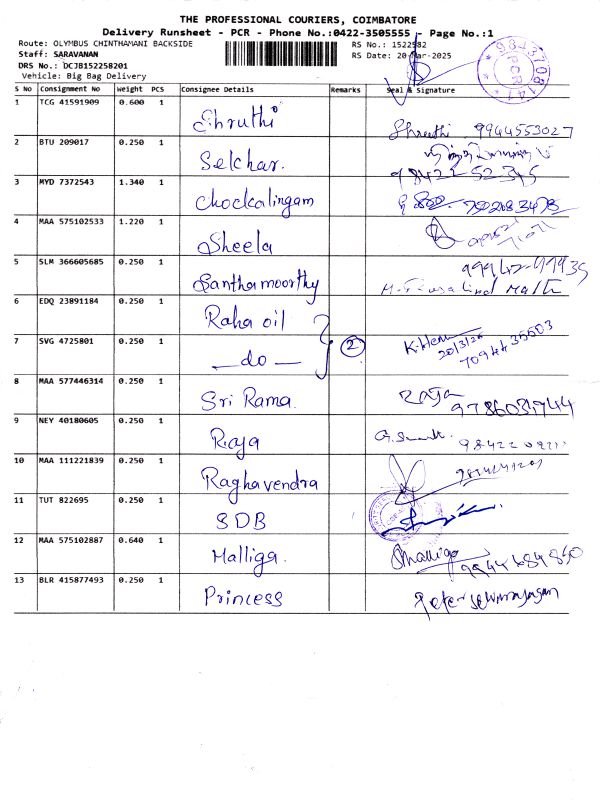 THE PROFESSIONAL COURIERS, COIMBATORE
Delivery Runsheet - PCR - Phone No.:0422-3505555 - Page No.:1
Route: OLYMBUS CHINTHAMANI BACKSIDE
RS No.: 1522582
Staff: SARAVANAN
RS Date: 20-Mar-2025
DRS No.: DCJB152258201
Vehicle: Big Bag Delivery
PCR
S No Consignment No Weight PCS Consignee Details Remarks Seal & Signature
1 TCG 41591909 0.600 1 Shruthi Shruthi 9944553027
2 BTU 209017 0.250 1 Selchar. 98422-52345
3 MYD 7372543 1.340 1 Chockalingam
4 MAA 575102533 1.220 1 Sheela
5 SLM 366605685 0.250 1 Santhamoorthy 99942-99935
6 EDQ 23891184 0.250 1 Raha oil
7 SVG 4725801 0.250 1 — do — 2 K. Hem 20/3/25 7094435503
8 MAA 577446314 0.250 1 Sri Rama Raja
9 NEY 40180605 0.250 1 Raja
10 MAA 111221839 0.250 1 Raghavendra
11 TUT 822695 0.250 1 SDB
12 MAA 575102887 0.640 1 Malliga. Malliga
13 BLR 415877493 0.250 1 Princess